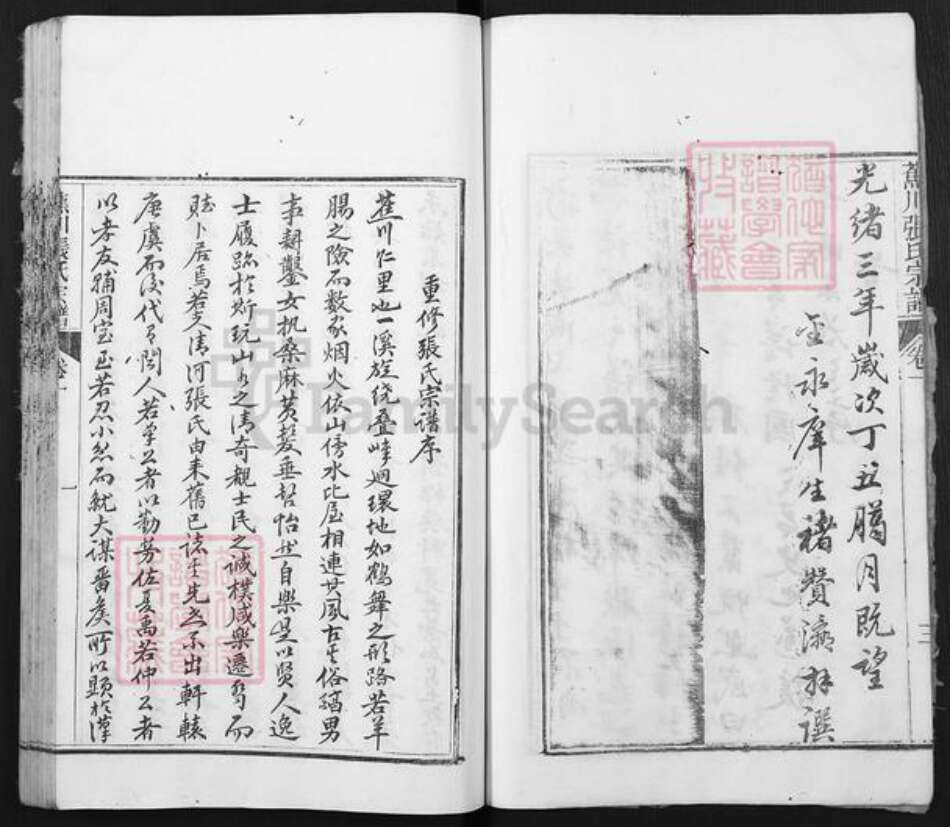 蕉川張氏宗譜 卷一
三
光緒三年歲次丁丑臈月既望
永庠生褚贊瀛拜譔
譜學會
收藏
FamilySearch
重修張氏宗谱序
蕉川仁里也一溪旋绕叠峰迴環地如鶴舞之形路若羊
腸之險而数家烟火依山傍水比屋相連其風古其俗淳男
事耕鑿女執桑麻黄髮垂髫怡然自樂是以賢人逸
士履跡於斯玩山水之清奇觀士民之誠樸咸樂遷居而
卜居焉若夫清河張氏由来舊已諸其先世系出軒轅
唐虞而後代有闻人若掌者以勤劳佐夏禹若仲公者
以孝友輔周室至若忍小忿而就大謀留矦所以顕於漢
蕉川張氏宗譜 卷一
一